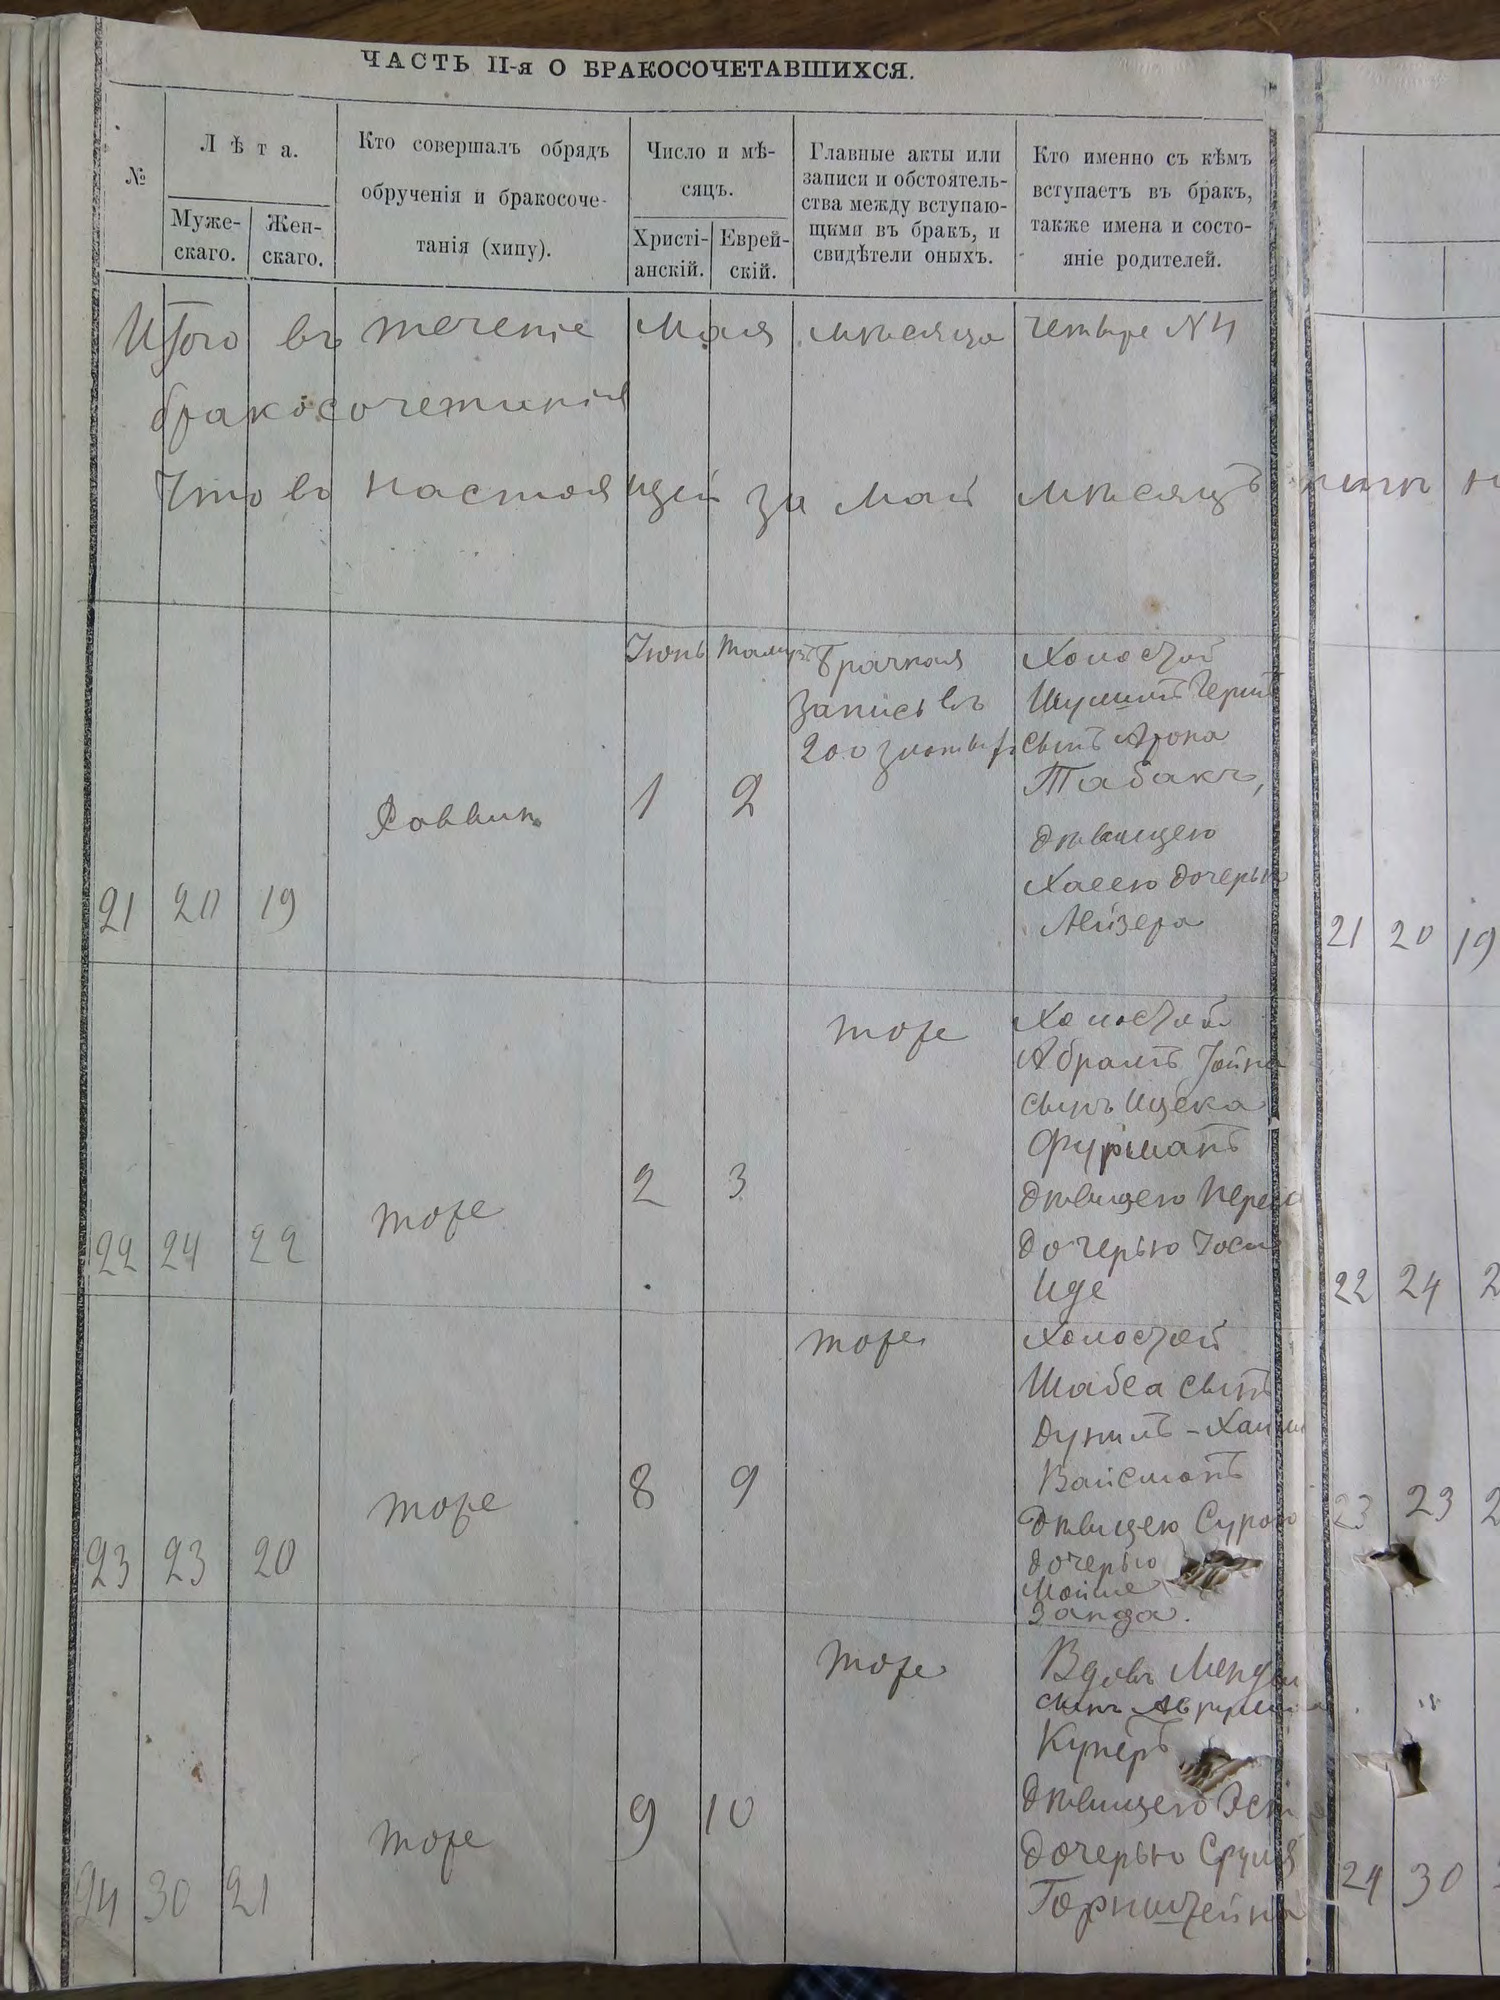 ЧАСТЬ II-я О БРАКОСОЧЕТАВШИХСЯ.
№
Лѣта.
Муже-
скаго.
Жен-
скаго.
Кто совершалъ обрядъ
обрученія и бракосоче-
танія (хипу).
Число и мѣ-
сяцъ.
Христі-
анскій.
Еврей-
скій.
Главные акты или
записи и обстоятель-
ства между вступаю-
щими въ бракъ, и
свидѣтели оныхъ.
Кто именно съ кѣмъ
вступаетъ въ бракъ,
также имена и состо-
яніе родителей.
Итого въ теченіе Мая мѣсяца четыре N 4
бракосочетанія
Что въ настоящей за Май мѣсяцъ
21 20 19
Раввин
Іюнь
1
Тамузъ
2
Брачная
запись въ
200 злотых
Холостой
Шулимъ Герш
сынъ Арона
Табакъ,
дѣвицею
Хаею дочерью
Лейзера
21 20 19
22 24 22
тоже
2 3
тоже
Холостой
Абрамъ Іойна
сынъ Ицека
Фурманъ
дѣвицею
дочерью
Иде
22 24 2
23 23 20
тоже
8 9
тоже
Холостой
Шабса сынъ
Вайсманъ
дѣвицею Сурою
дочерью
Мойше
Занда.
23 23 2
24 30 21
тоже
9 10
тоже
Вдовъ Мендель
сынъ
Куперъ
дѣвицею
дочерью Сруля
Горнштейна
24 30